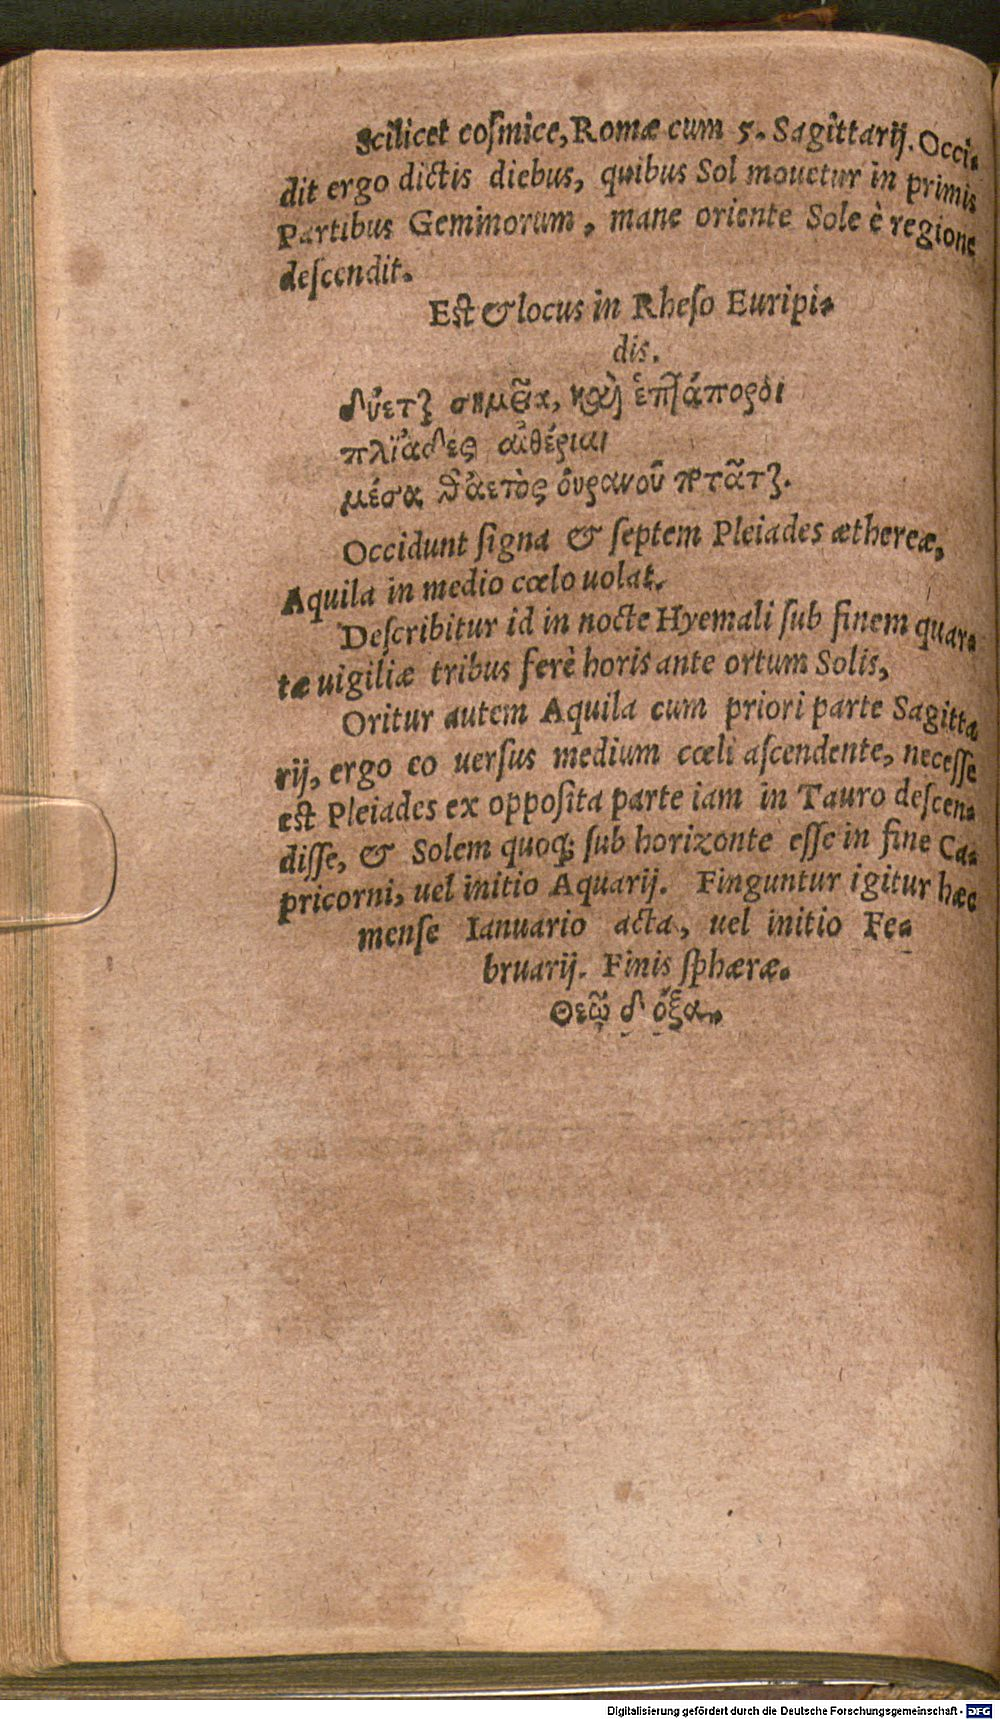 Scilicet coſmice, Romæ cum 5. Sagittarij. Occi-
dit ergo dictis diebus, quibus Sol mouetur in primis
Partibus Geminorum, mane oriente Sole è regione
deſcendit.
Est & locus in Rheſo Euripi-
dis.
δύεται σημεῖα, καὶ ἑπτάποροι
πλϊάδες αἰθέριαι
μέσα δ' ἀετὸς οὐρανοῦ ποτᾶται.
Occidunt ſigna & ſeptem Pleiades æthereæ,
Aquila in medio cœlo uolat.
Deſcribitur id in nocte Hyemali ſub finem quar-
tæ uigiliæ tribus ferè horis ante ortum Solis,
Oritur autem Aquila cum priori parte Sagitta
rij, ergo eo uerſus medium cœli aſcendente, neceſſe
est Pleiades ex oppoſita parte iam in Tauro deſcen-
diſſe, & Solem quoq; ſub horizonte eſſe in fine Ca-
pricorni, uel initio Aquarij. Finguntur igitur hæc
menſe Ianuario acta, uel initio Fe-
bruarij. Finis ſphæræ.
Θεῷ δόξα.
Digitalisierung gefördert durch die Deutsche Forschungsgemeinschaft - DFG